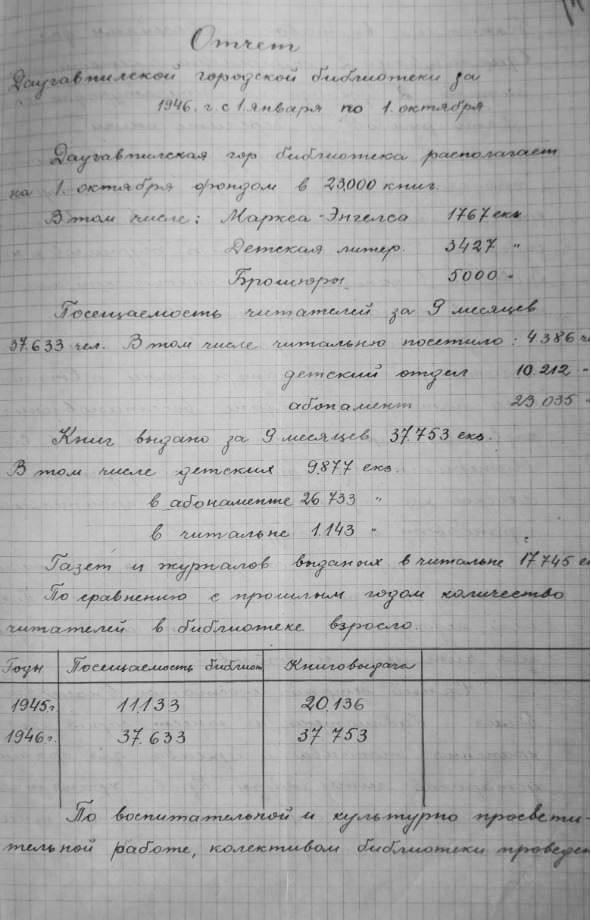 Отчет
Даугавпилской городской библиотеки за
1946. г. с 1. января по 1. октября
Даугавпилская гор библиотека располагает
на 1. октября фондом в 23.000 книг.
В том числе: Маркса-Энгелса 1767 екз
Детская литер. 3427 "
Брошюры 5000 "
Посещаемость читателей за 9 месяцев
37.633 чел. В том числе читальню посетило: 4386 че
детский отдел 10.212 "
абонамент 23.035 "
Книг выдано за 9 месяцев 37.753 екз.
В том числе детских 9.877 екз.
в абонаменте 26.733 "
в читальне 1.143 "
Газет и журналов выданых в читальне 17.745 ек
По сравнению с прошлым годом количество
читателей в библиотеке взросло.
Годы Посещаемость библиот Книговыдача
1945г. 11.133 20.136
1946г. 37.633 37.753
По воспитательной и культурно просвети-
тельной работе, колективом библиотеки проведен